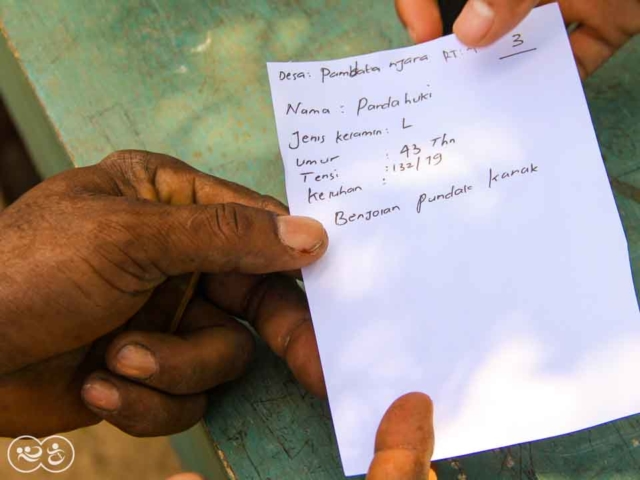 3
Desa: Pambata njara RT:
Nama : Pandahuki
Jenis keramin: L
umur : 43 Thn
Tensi : 132/79
Keluhan :
Benjolan pundak kanak